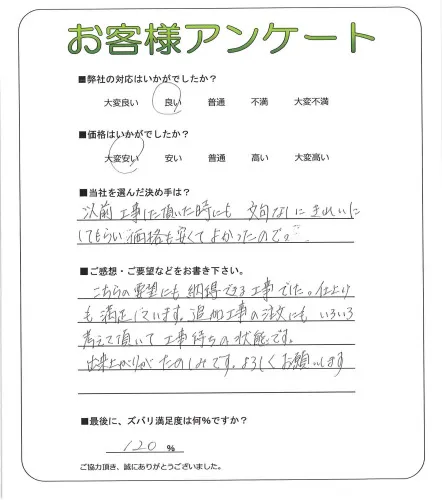 お客様アンケート
■弊社の対応はいかがでしたか？
大変良い 良い 普通 不満 大変不満
■価格はいかがでしたか？
大変安い 安い 普通 高い 大変高い
■当社を選んだ決め手は？
以前工事した頂いた時にも 文句なしにきれいに
してもらい価格も安くてよかったので。
■ご感想・ご要望などをお書き下さい。
こちらの要望にも納得できる工事でした。仕上げ
も満足しています。追加工事の注文にもいろいろ
考えて頂いて工事待ちの状態です。
出来上がりがたのしみです。よろしくお願いします
■最後に、ズバリ満足度は何%ですか？
120 %
ご協力頂き、誠にありがとうございました。